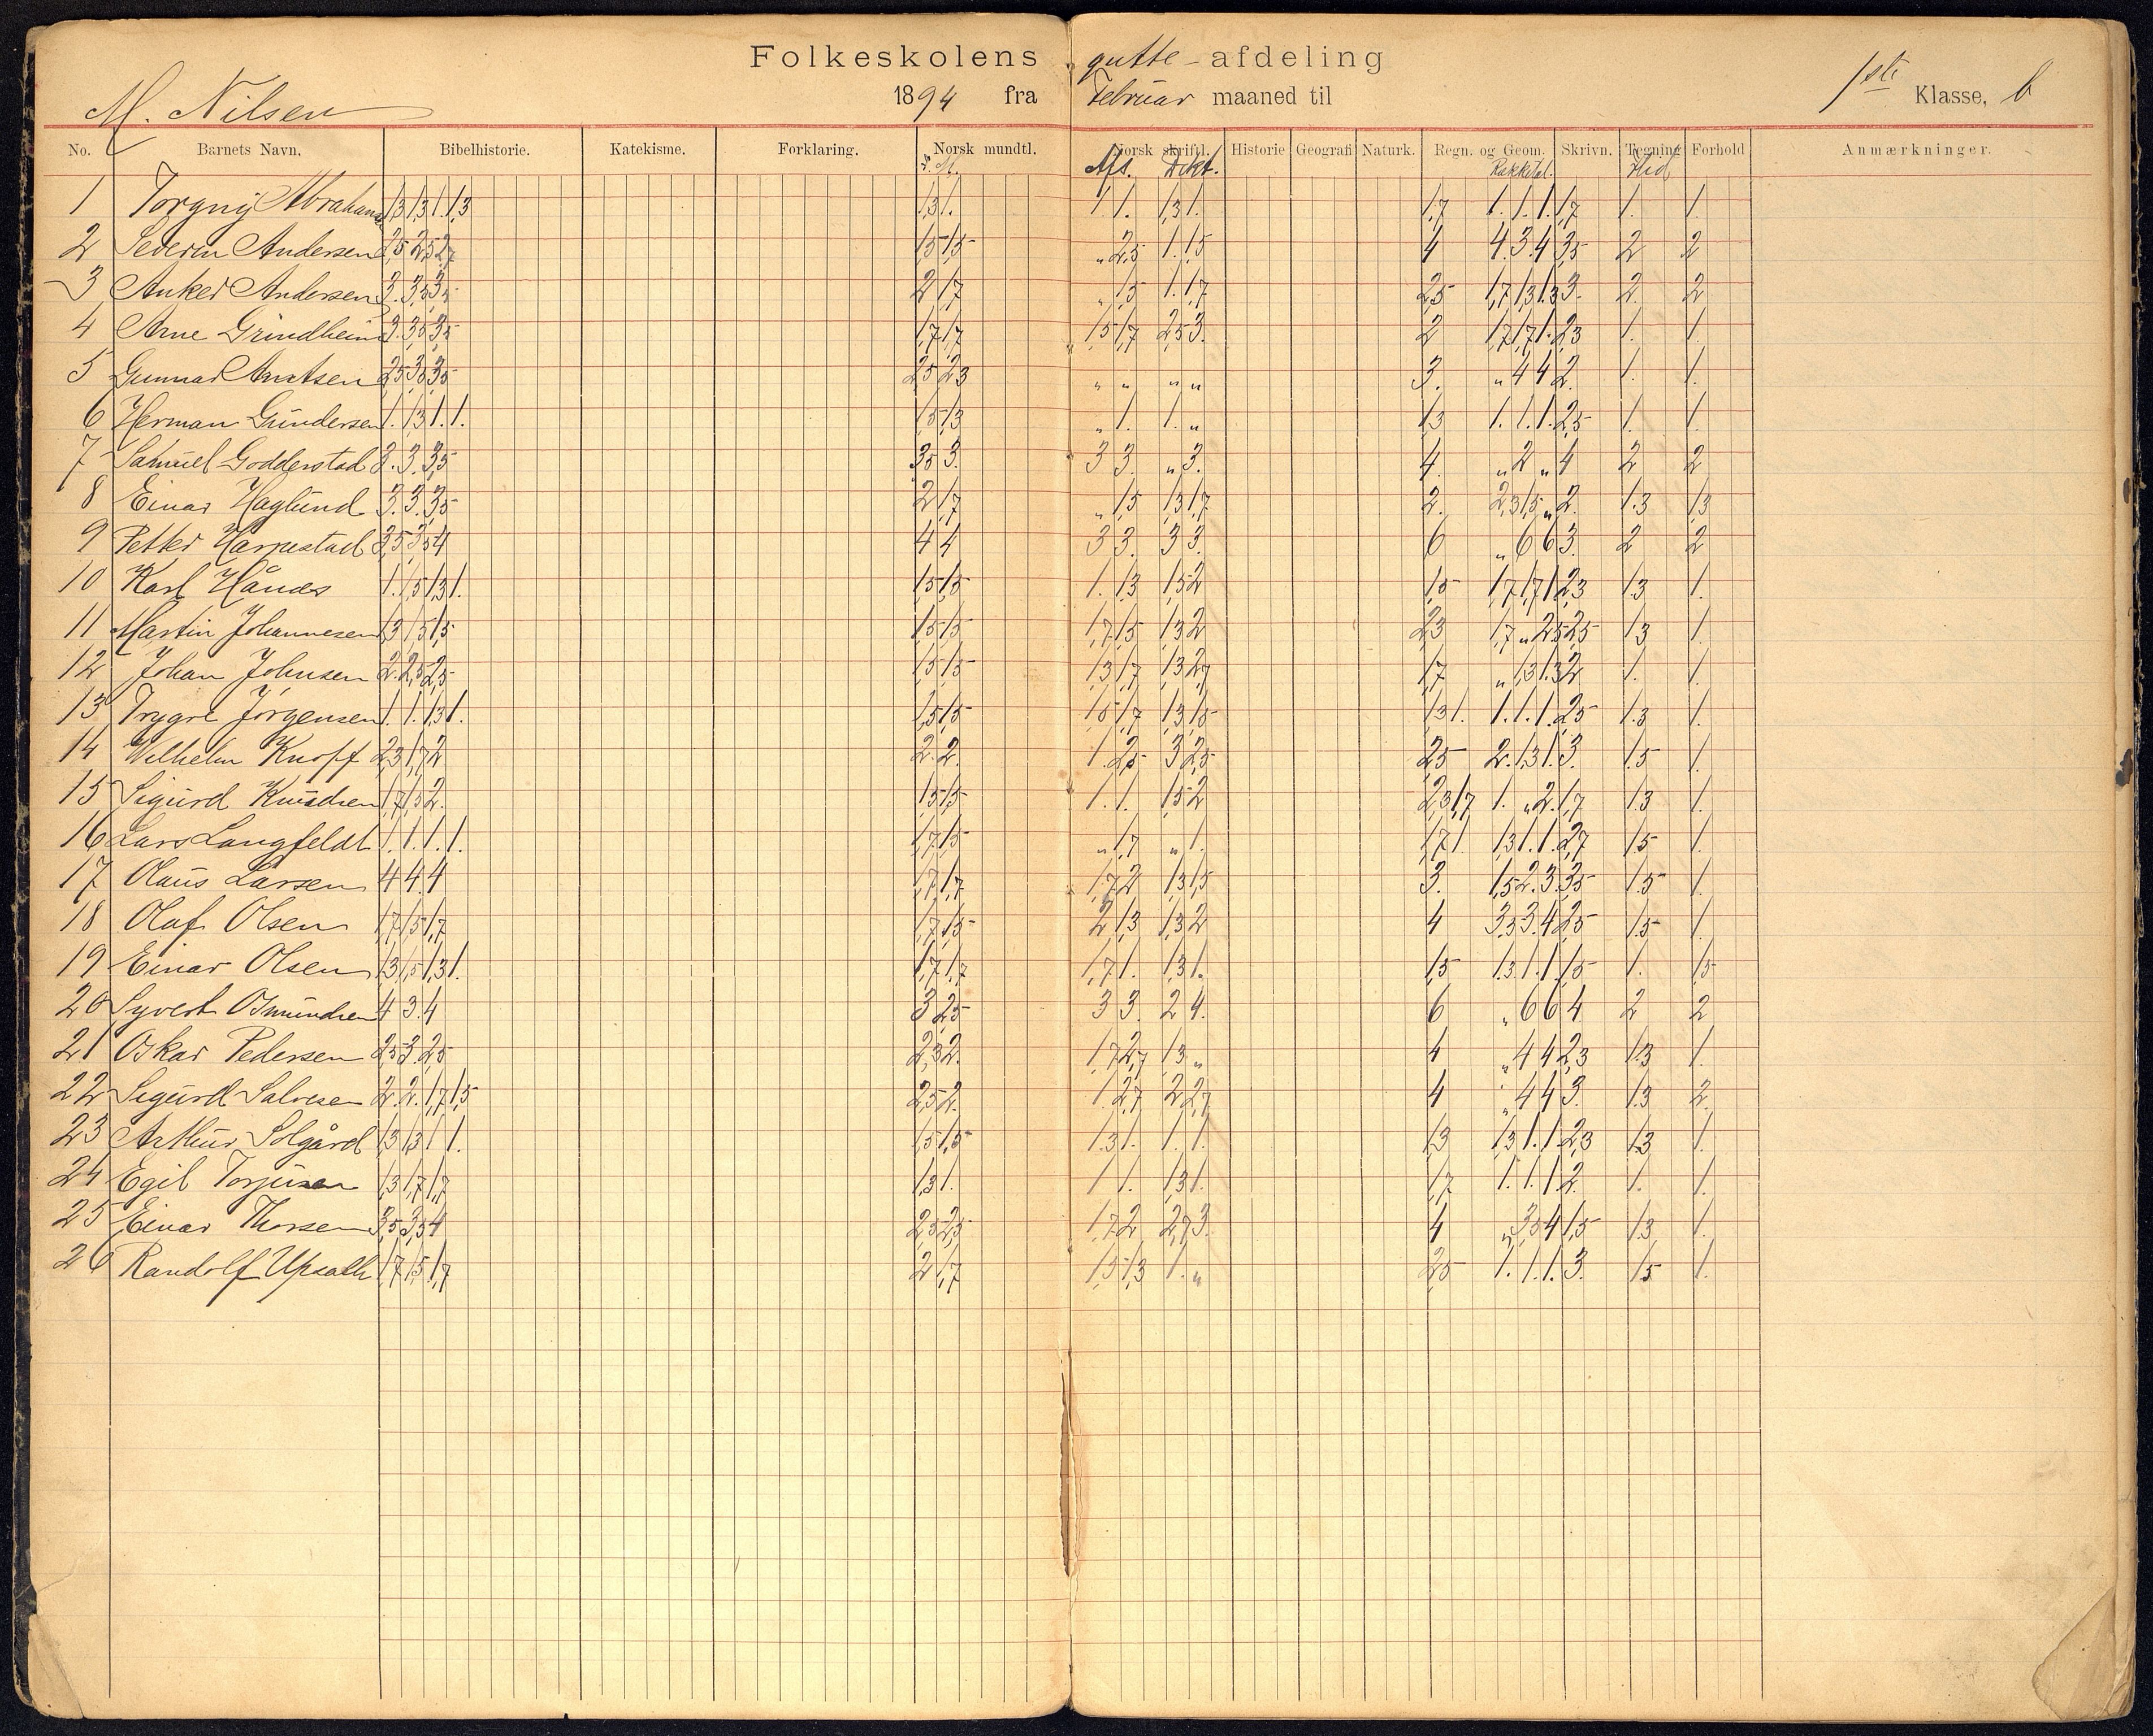 Folkeskolens gutte-afdeling
M. Nilsen 1894 fra Februar maaned til 1ste Klasse, b
No. Barnets Navn. Bibelhistorie. Katekisme. Forklaring. Norsk mundtl. Norsk skriftl. Historie Geografi Naturk. Regn. og Geom. Skrivn. Tegning Forhold Anmærkninger.
Afs. Dikt. Rækketal. Flid
1 Torgny Abrahams 1,3 1,3 1. 1,3 1,3 1. 1. 1. 1,3 1. 1,7 1. 1. 1. 1,7 1. 1.
2 Severin Andersen 2,5 2,5 2,7 1,5 1,5 " 2,5 1. 1,5 4 4. 3. 4 3,5 2 2
3 Anker Andersen 3. 3,5 3,5 2 1,7 " 1,5 1. 1,7 2,5 1,7 1,3 1,3 3. 2. 2
4 Arne Grindheim 3. 3,5 3,5 1,7 1,7 1,5 1,7 2,5 3. 2 1,7 1,7 1. 2,3 1. 1.
5 Gunnar Arntsen 2,5 3,5 3,5 2,5 2,3 " " " " 3. " 4 4 2. 1. 1.
6 Herman Gundersen 1. 1,3 1. 1. 1,5 1,3 " 1. 1. " 1,3 1. 1. 1. 2,5 1. 1.
7 Samuel Godderstad 3. 3. 3,5 3,5 3. 3 3. " 3. 4. " 2 " 4 2 2
8 Einar Haglund 3. 3. 3,5 2 1,7 " 1,5 1,3 1,7 2. 2,3 1,5 " 2. 1.3 1,3
9 Petter Harpestad 3,5 3,5 4 4 4 3 3. 3 3. 6 " 6 6 3. 2 2
10 Karl 1. 1,5 1,3 1. 1,5 1,5 1. 1,3 1,5 2 1,5 1,7 1,7 1. 2,3 1.3 1.
11 Martin Johannesen 1,3 1,5 1,5 1,5 1,5 1,7 1,5 1,3 2 2,3 1,7 " 2,5 2,5 1,3 1.
12 Johan Johnsen 2. 2,5 2,5 1,5 1,5 1,3 1,7 1,3 2,7 1,7 " 1,3 1,3 2. 1. 1.
13 Trygve Jörgensen 1. 1. 1,3 1. 1,5 1,5 1,5 1,7 1,3 1,5 1,3 1. 1. 1. 1. 2,5 1.3 1.
14 Wilhelm Knoff 2,3 1,7 2 2. 2. 1. 2,5 3 2,5 2,5 2. 1,3 1. 3. 1.5 1.
15 Sigurd Knudsen 1,7 1,5 2. 1,5 1,5 1. 1. 1,5 2 2,3 1,7 1. " 2. 1,7 1.3 1.
16 Lars Langfeldt 1. 1. 1. 1. 1,7 1,5 " 1,7 " 1. 1,7 1 1,3 1. 1. 2,7 1.5 1.
17 Olaus Larsen 4 4. 4 1,7 1,7 1,7 2 1,3 1,5 3. 1,5 2. 3. 3,5 1.5 1.
18 Olaf Olsen 1,7 1,5 1,7 1,7 1,5 2 1,3 1,3 2 4 3,5 3. 4 2,5 1.5 1.
19 Einar Olsen 1,3 1,5 1,3 1. 1,7 1,7 1,7 1. 1,3 1. 1,5 1.3 1. 1. 1,5 1. 1,5
20 Syvert Osmundsen 4 3. 4 3 2,5 3 3. 2 4. 6 " 6 6 4 2 2
21 Oskar Pedersen 2,5 3. 2,5 2,3 2. 1,7 2,7 1,3 " 4 " 4 4 2,3 1.3 1.
22 Sigurd Salvesen 2. 2. 1,7 1,5 2,5 2. 1. 2,7 2 2,7 4 " 4 4 3. 1.3 2.
23 Arthur Solgård 1,3 1,3 1 1. 1,5 1,5 1.3 1. 1. 1. 1,3 1,3 1. 1. 2,3 1.3 1.
24 Egil Torjusen 1,3 1,7 1,7 1,3 1. 1 1. 1,3 1. 1,7 1. 1. 1. 2. 1. 1.
25 Einar Thorsen 3,5 3,5 4 2,5 2,5 1,7 2 2,7 3. 4 " 3,5 4 1,5 1.3 1.
26 Randolf Upsalh 1,7 1,5 1,7 2 1,7 1,5 1,3 1. " 2,5 1. 1. 1. 3. 1.5 1.